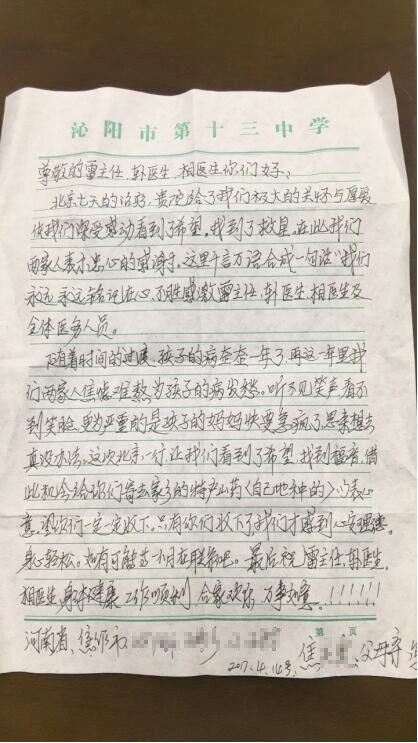 沁阳市第十三中学
尊敬的雷主任、卦医生、相医生你们好：
北京七天的治疗，贵院给了我们极大的关怀与厚爱
使我们深受感动看到了希望，找到了救星，在此我们
两家人表示忠心的感谢，这里千言万语合成一句话"我们
永远永远铭记在心，不胜感激雷主任，卦医生，相医生及
全体医务人员。
随着时间的过度，孩子的病整整一年了再这一年里我
们两家人焦急难熬为孩子的病发愁。听不见笑声看不
到笑脸，更为严重的是孩子的妈妈快要急疯了思来想去
真没办法。这次北京一行，让我们看到了希望，找到福音，借
此机会给你们寄去家乡的特产山药（自己地种的）以表心
意，望你们一定一定收下。只有你们收下了我们才感到心安理德。
身心轻松。如有可能 一月 联 吧。最后祝雷主任，卦医生，
相医生身体健康 工作顺利 合家欢乐 万事如意．！！！！！！
第 页
河南省、焦作市
2017.4.14号. 焦 父母亲